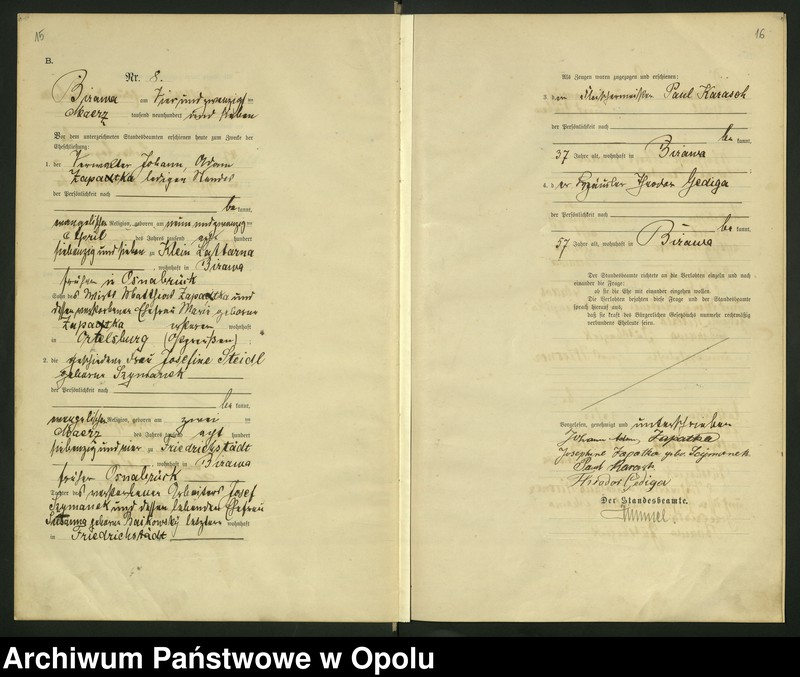 15
B.
Nr. 8.
Birawa am Vier und zwanzigsten
Maerz tausend neunhundert und sieben
Vor dem unterzeichneten Standesbeamten erschienen heute zum Zwecke der
Eheschließung:
1. der Verwalter Johann Adam
Zapadtka ledigen Standes
der Persönlichkeit nach
be kannt,
evangelischer Religion, geboren am neun und zwanzig
April des Jahres tausend acht hundert
siebenzig und sieben zu Klein Lattana
, wohnhaft in Birawa
früher in Osnabrück
Sohn des Wirts Matthias Zapadtka und
dessen verstorbener Ehefrau Marie geborene
Zapadtka ersterer wohnhaft
in Ortelsburg (Ostpreußen)
2. die geschiedene Frau Josefine Steidl
geborene Szymanek
der Persönlichkeit nach
be kannt,
evangelischer Religion, geboren am zwei
Maerz des Jahres tausend acht hundert
siebenzig und vier zu Friedrichstädt
, wohnhaft in Birawa
früher Osnabrück
Tochter des verstorbenen Arbeiters Josef
Szymanek und dessen lebenden Ehefrau
Susanna geborene Baikowsky letztere wohnhaft
in Friedrichstädt
16
Als Zeugen waren zugezogen und erschienen:
3. der Fleischermeister Paul Karasch
der Persönlichkeit nach
be kannt,
37 Jahre alt, wohnhaft in Birawa
4. der Theodor Gediga
der Persönlichkeit nach
be kannt,
57 Jahre alt, wohnhaft in Birawa
Der Standesbeamte richtete an die Verlobten einzeln und nach
einander die Frage:
ob sie die Ehe mit einander eingehen wollen.
Die Verlobten bejahten diese Frage und der Standesbeamte
sprach hierauf aus,
daß sie kraft des Bürgerlichen Gesetzbuchs nunmehr rechtmäßig
verbundene Eheleute seien.
Vorgelesen, genehmigt und unterschrieben
Johann Adam Zapatka
Josephine Zapatka gebo. Scijmanek
Paul Karasch
Theodor Gediga
Der Standesbeamte.
Archiwum Państwowe w Opolu